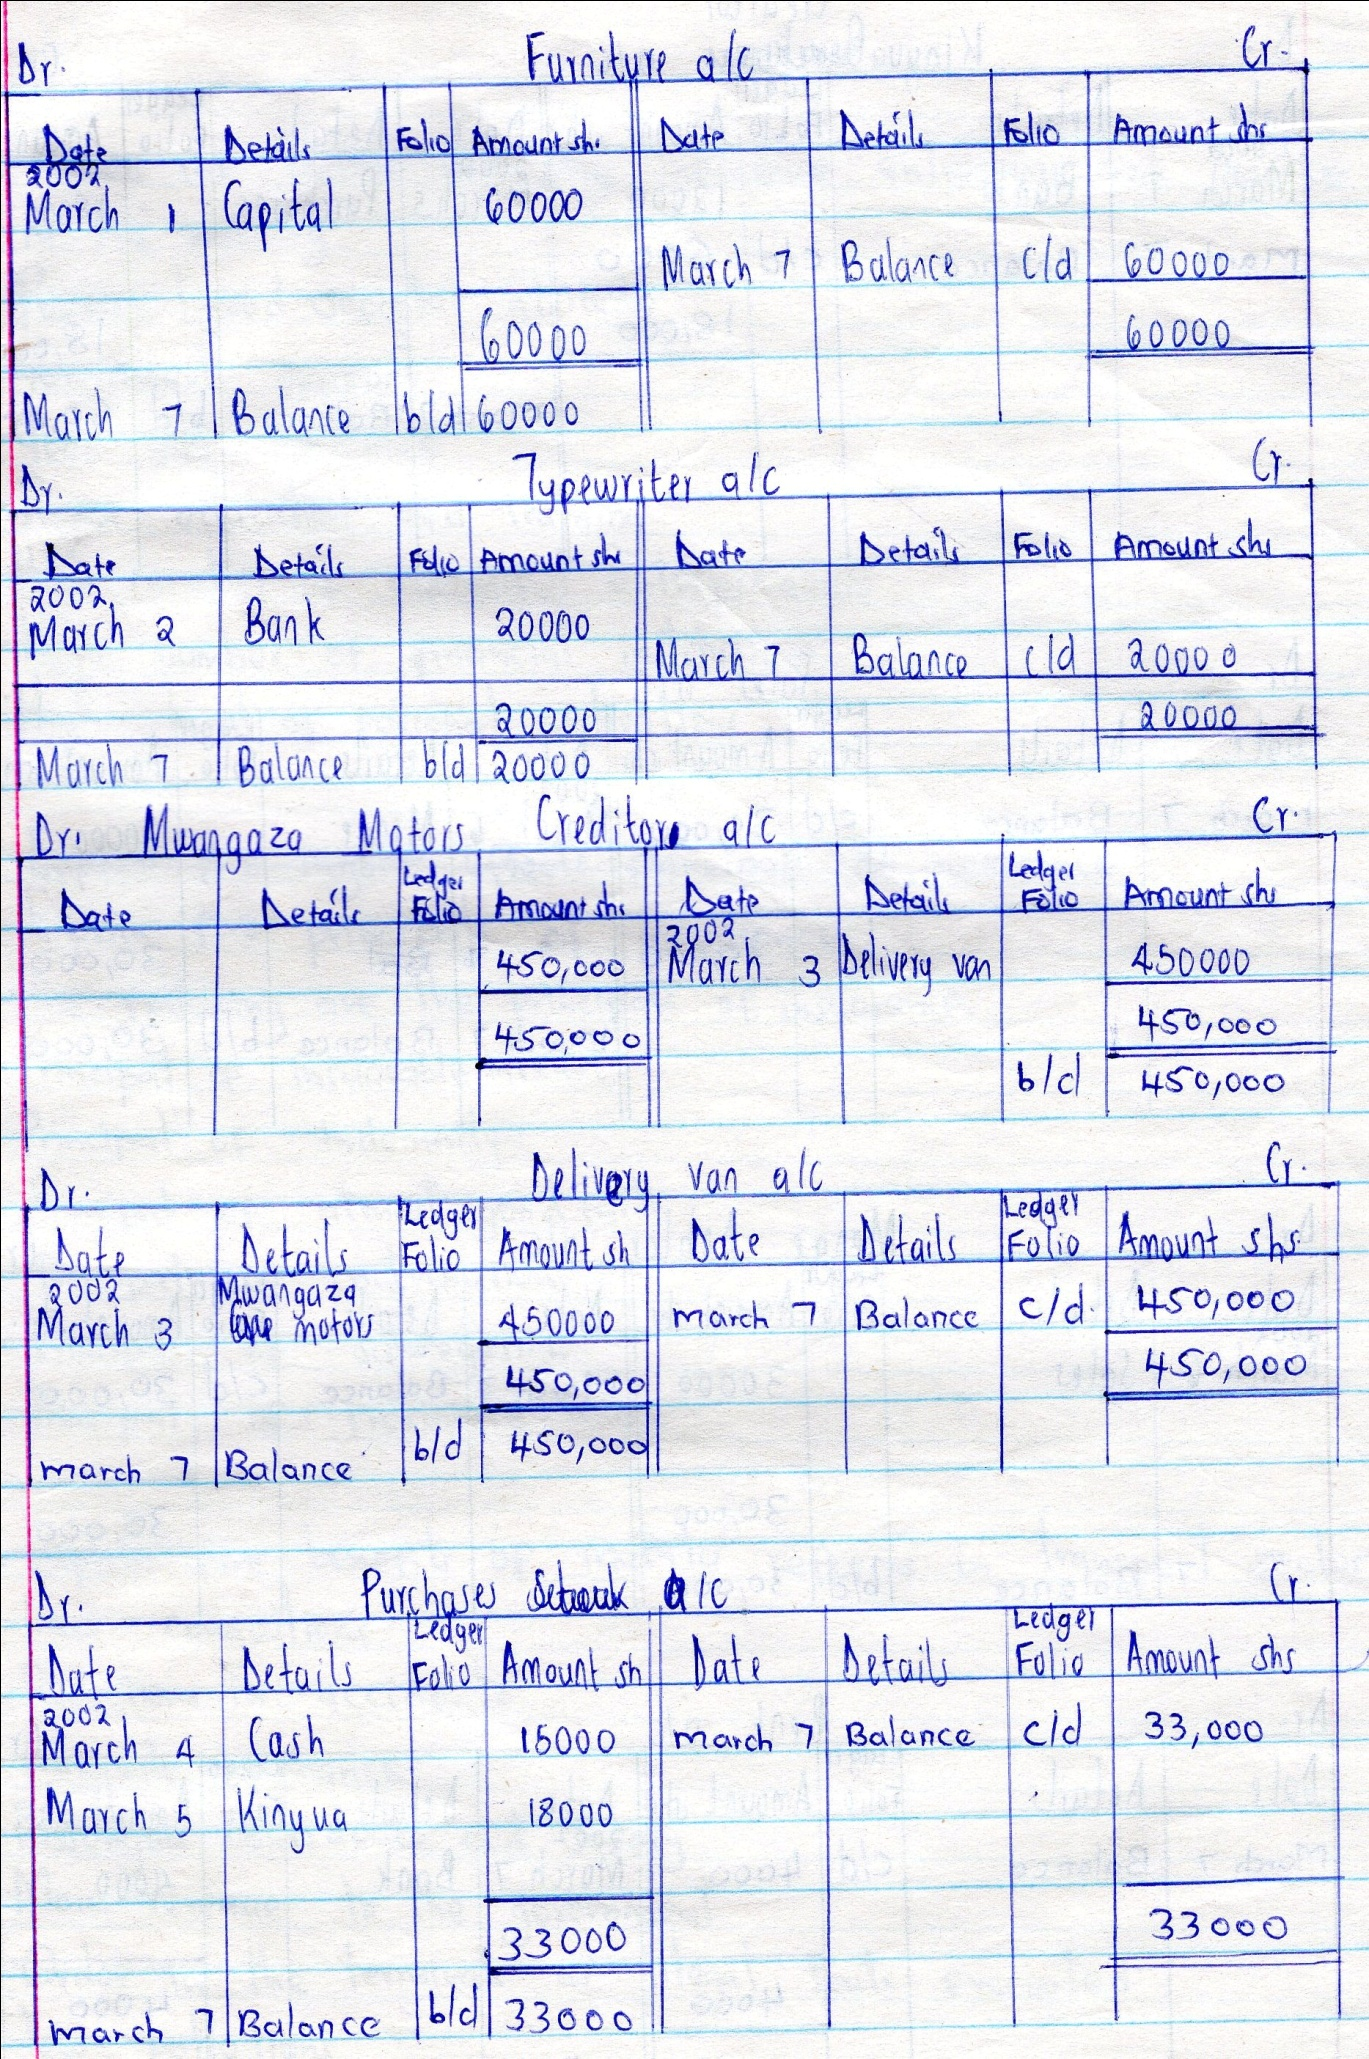 Dr. Furniture a/c Cr.
Date Details Folio Amount shs Date Details Folio Amount shs
2002
March 1 Capital 60000
March 7 Balance c/d 60000
60000 60000
March 7 Balance b/d 60000
Dr. Typewriter a/c Cr.
Date Details Folio Amount shs Date Details Folio Amount shs
2002
March 2 Bank 20000
March 7 Balance c/d 20000
20000 20000
March 7 Balance b/d 20000
Dr. Mwangaza Motors Creditors a/c Cr.
Date Details Ledger Folio Amount shs Date Details Ledger Folio Amount shs
2002
450,000 March 3 Delivery van 450000
450,000 450,000
b/d 450,000
Dr. Delivery van a/c Cr.
Date Details Ledger Folio Amount sh Date Details Ledger Folio Amount shs
2002 Mwangaza
March 3 motors 450000 march 7 Balance c/d. 450,000
450,000 450,000
march 7 Balance b/d 450,000
Dr. Purchases a/c Cr.
Date Details Ledger Folio Amount sh Date Details Ledger Folio Amount shs
2002
March 4 Cash 15000 march 7 Balance c/d 33,000
March 5 Kinyua 18000
33000 33000
march 7 Balance b/d 33000